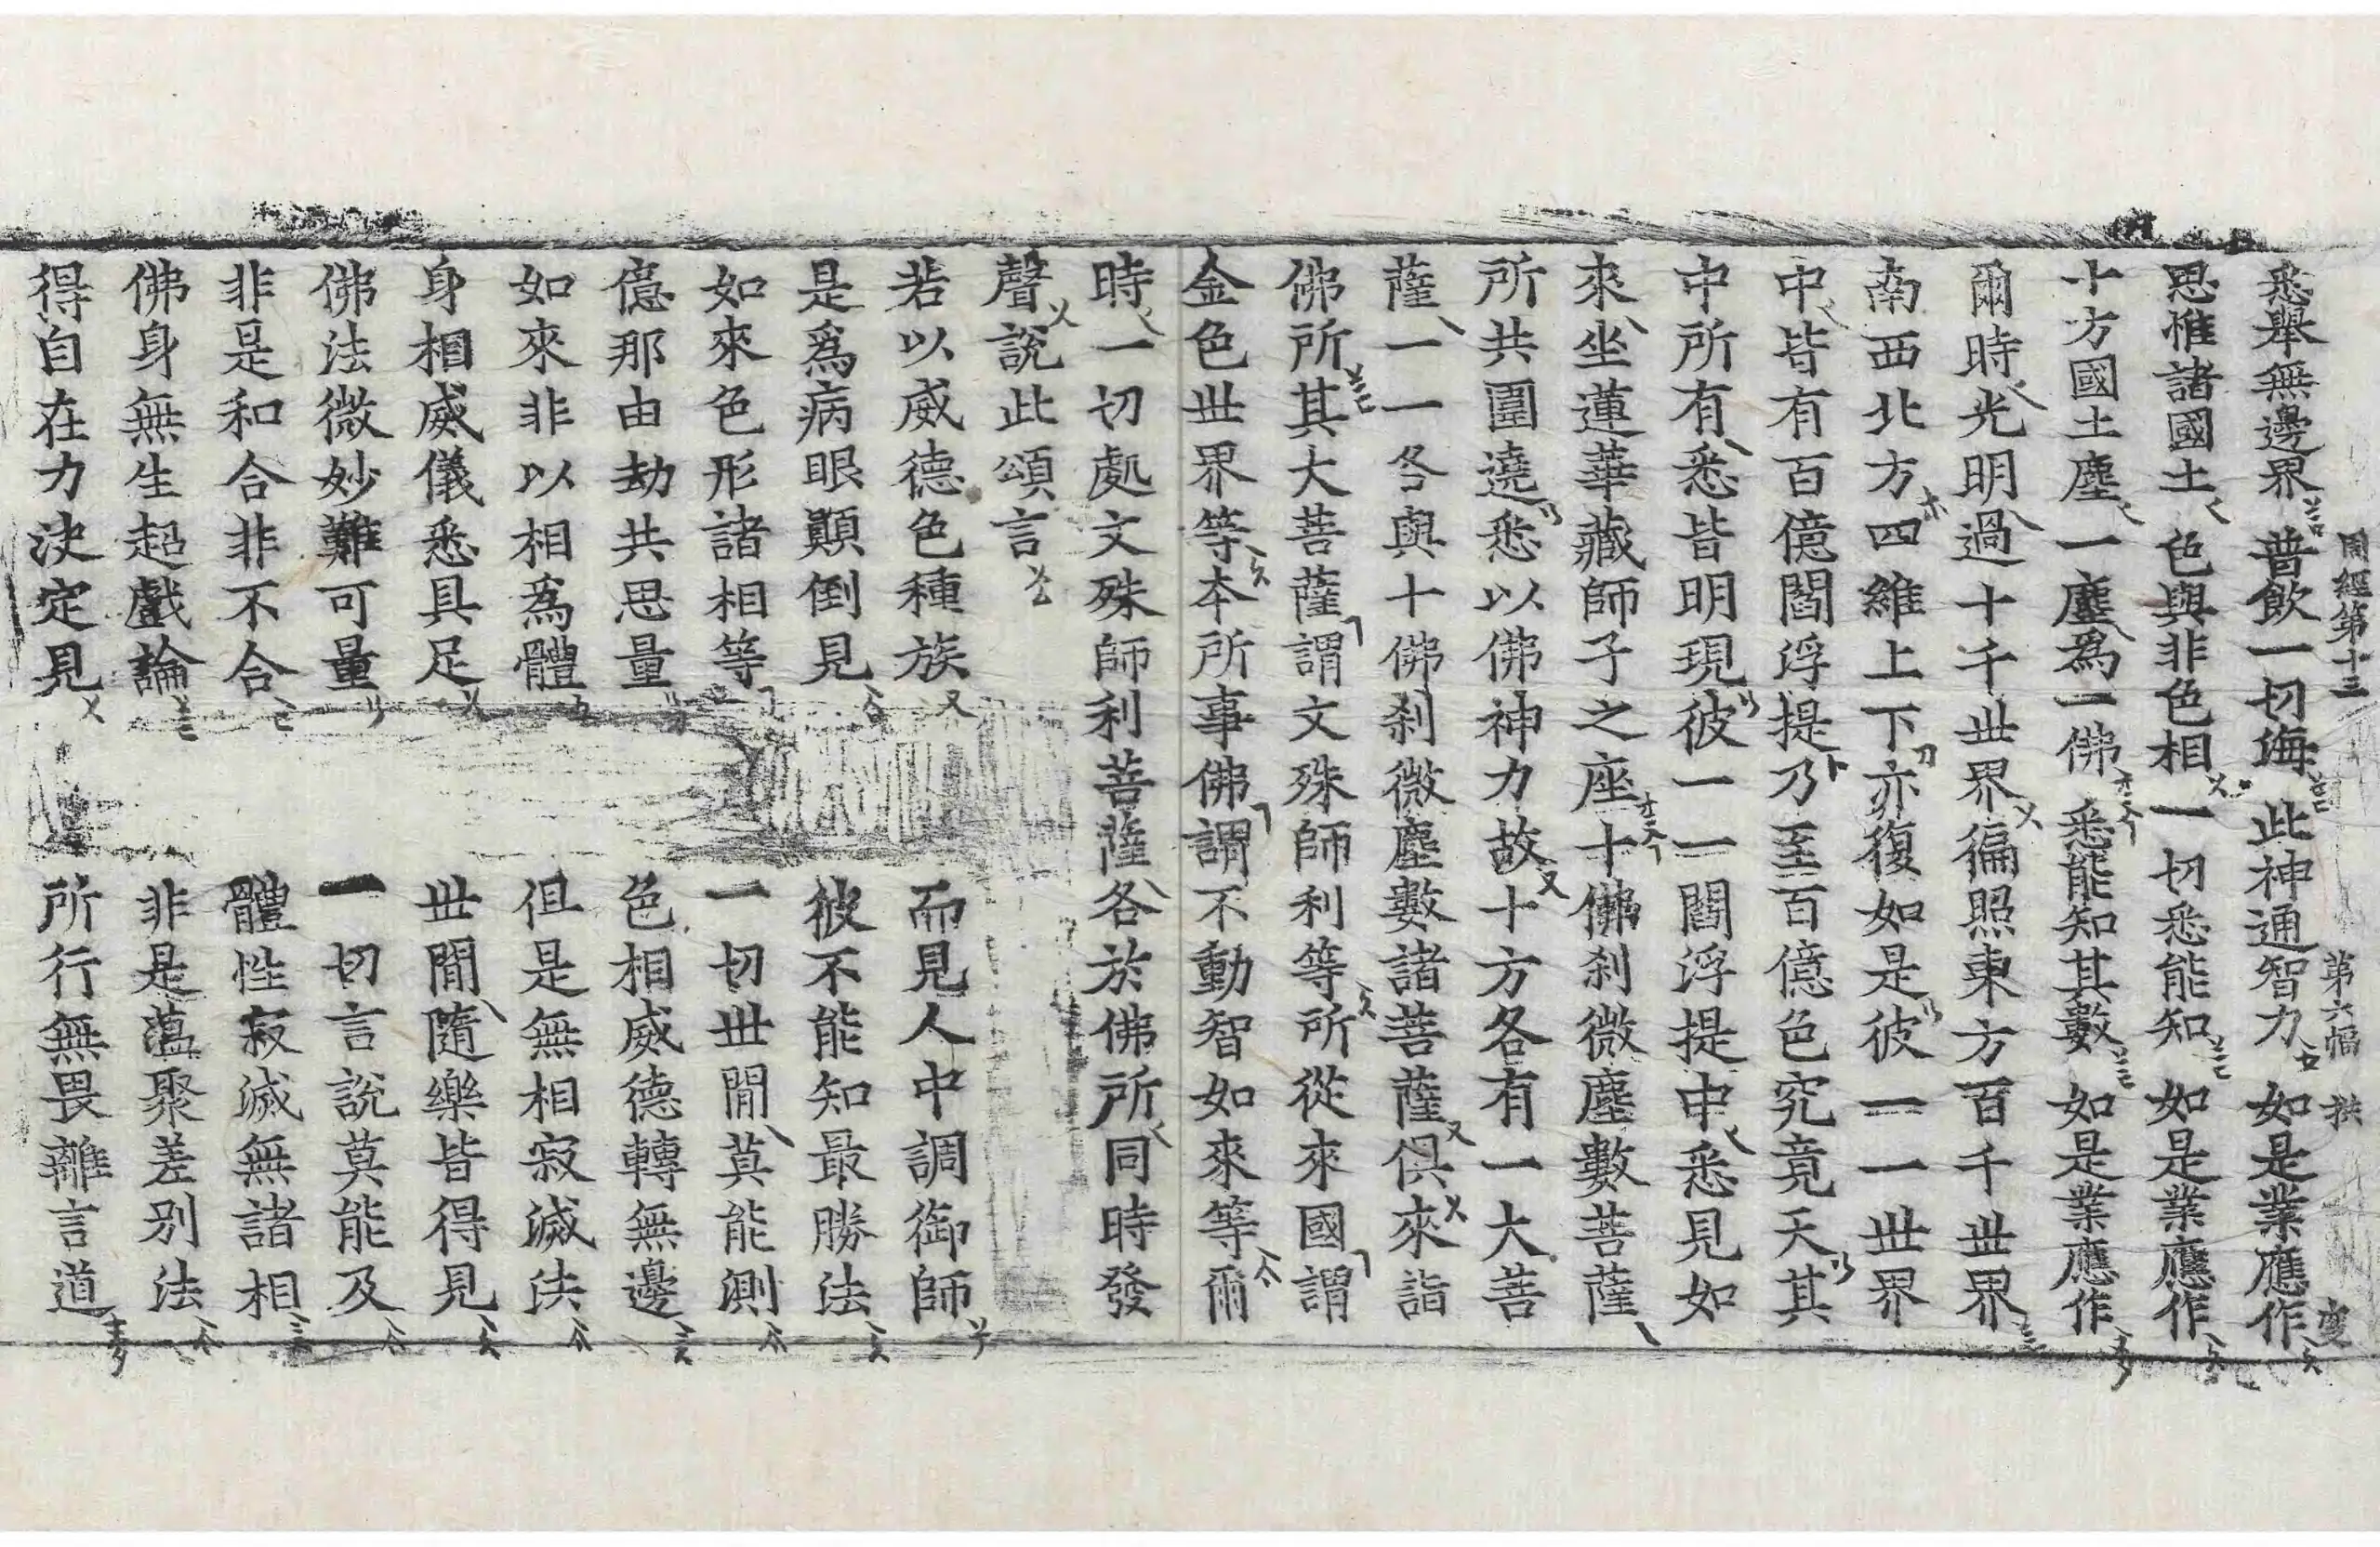 周經第十三 第六幅 拱 変
悉舉無邊界 普飲一切海 此神通智力 如是業應作
思惟諸國土 色與非色相 一切悉能知 如是業應作
十方國土塵 一塵爲一佛 悉能知其數 如是業應作
爾時光明過十千世界徧照東方百千世界
南西北方四維上下亦復如是彼一一世界
中皆有百億閻浮提乃至百億色究竟天其
中所有悉皆明現彼一一閻浮提中悉見如
來坐蓮華藏師子之座十佛刹微塵數菩薩
所共圍遶悉以佛神力故十方各有一大菩
薩一一各與十佛刹微塵數諸菩薩俱來詣
佛所其大菩薩謂文殊師利等所從來國謂
金色世界等本所事佛謂不動智如來等爾
時一切處文殊師利菩薩各於佛所同時發
聲說此頌言
若以威德色種族 而見人中調御師
是爲病眼顚倒見 彼不能知最勝法
如來色形諸相等 一切世閒莫能測
億那由劫共思量 色相威德轉無邊
如來非以相爲體 但是無相寂滅法
身相威儀悉具足 世閒隨樂皆得見
佛法微妙難可量 一切言說莫能及
非是和合非不合 體性寂滅無諸相
佛身無生超戲論 非是蘊聚差別法
得自在力決定見 所行無畏離言道